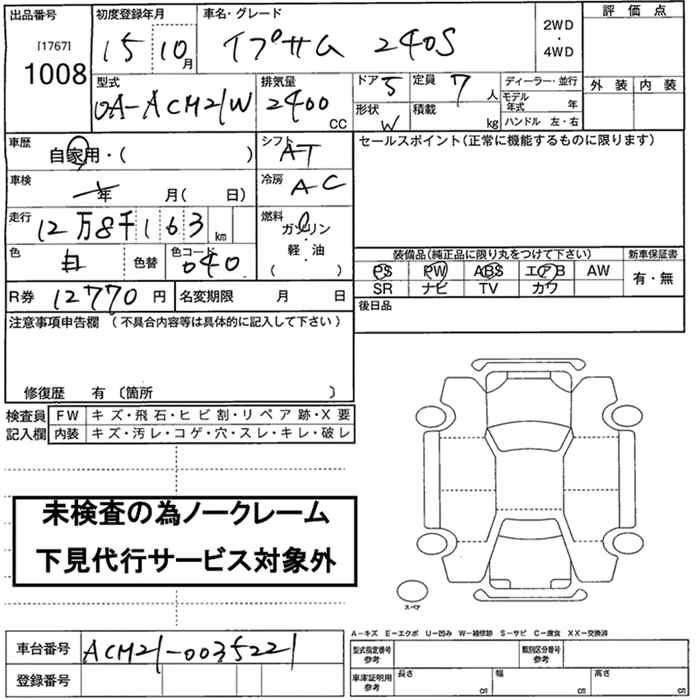 出品番号 初度登録年月 車名・グレード 評価点
[1767] 15 10月 イプサム 240S 2WD・4WD
1008
型式 排気量 ドア 5 定員 7人 ディーラー・並行 外装 内装
UA-ACM21W 2400CC 形状 W 積載 kg モデル年式 年
ハンドル 左・右
車歴 自家用・( ) シフト AT セールスポイント(正常に機能するものに限ります)
車検 年 月( 日) 冷房 AC
走行 12万8千163km 燃料 ガソリン
軽・油
( )
色 白 色替 色コード 040 装備品(純正品に限り丸をつけて下さい) 新車保証書
PS PW ABS エアB AW 有・無
SR ナビ TV カワ
R券 12770円 名変期限 月 日 後日品
注意事項申告欄 (不具合内容等は具体的に記入して下さい)
修復歴 有 〔箇所 〕
検査員 FW キズ・飛石・ヒビ割・リペア跡・X要
記入欄 内装 キズ・汚レ・コゲ・穴・スレ・キレ・破レ
未検査の為ノークレーム
下見代行サービス対象外
スペア
A-キズ E-エクボ U-凹み W-補修跡 S-サビ C-腐食 XX-交換済
車台番号 ACM21-0035221 型式指定番号 参考 類別区分番号 参考
登録番号 車庫証明用 参考 長さ cm 幅 cm 高さ cm